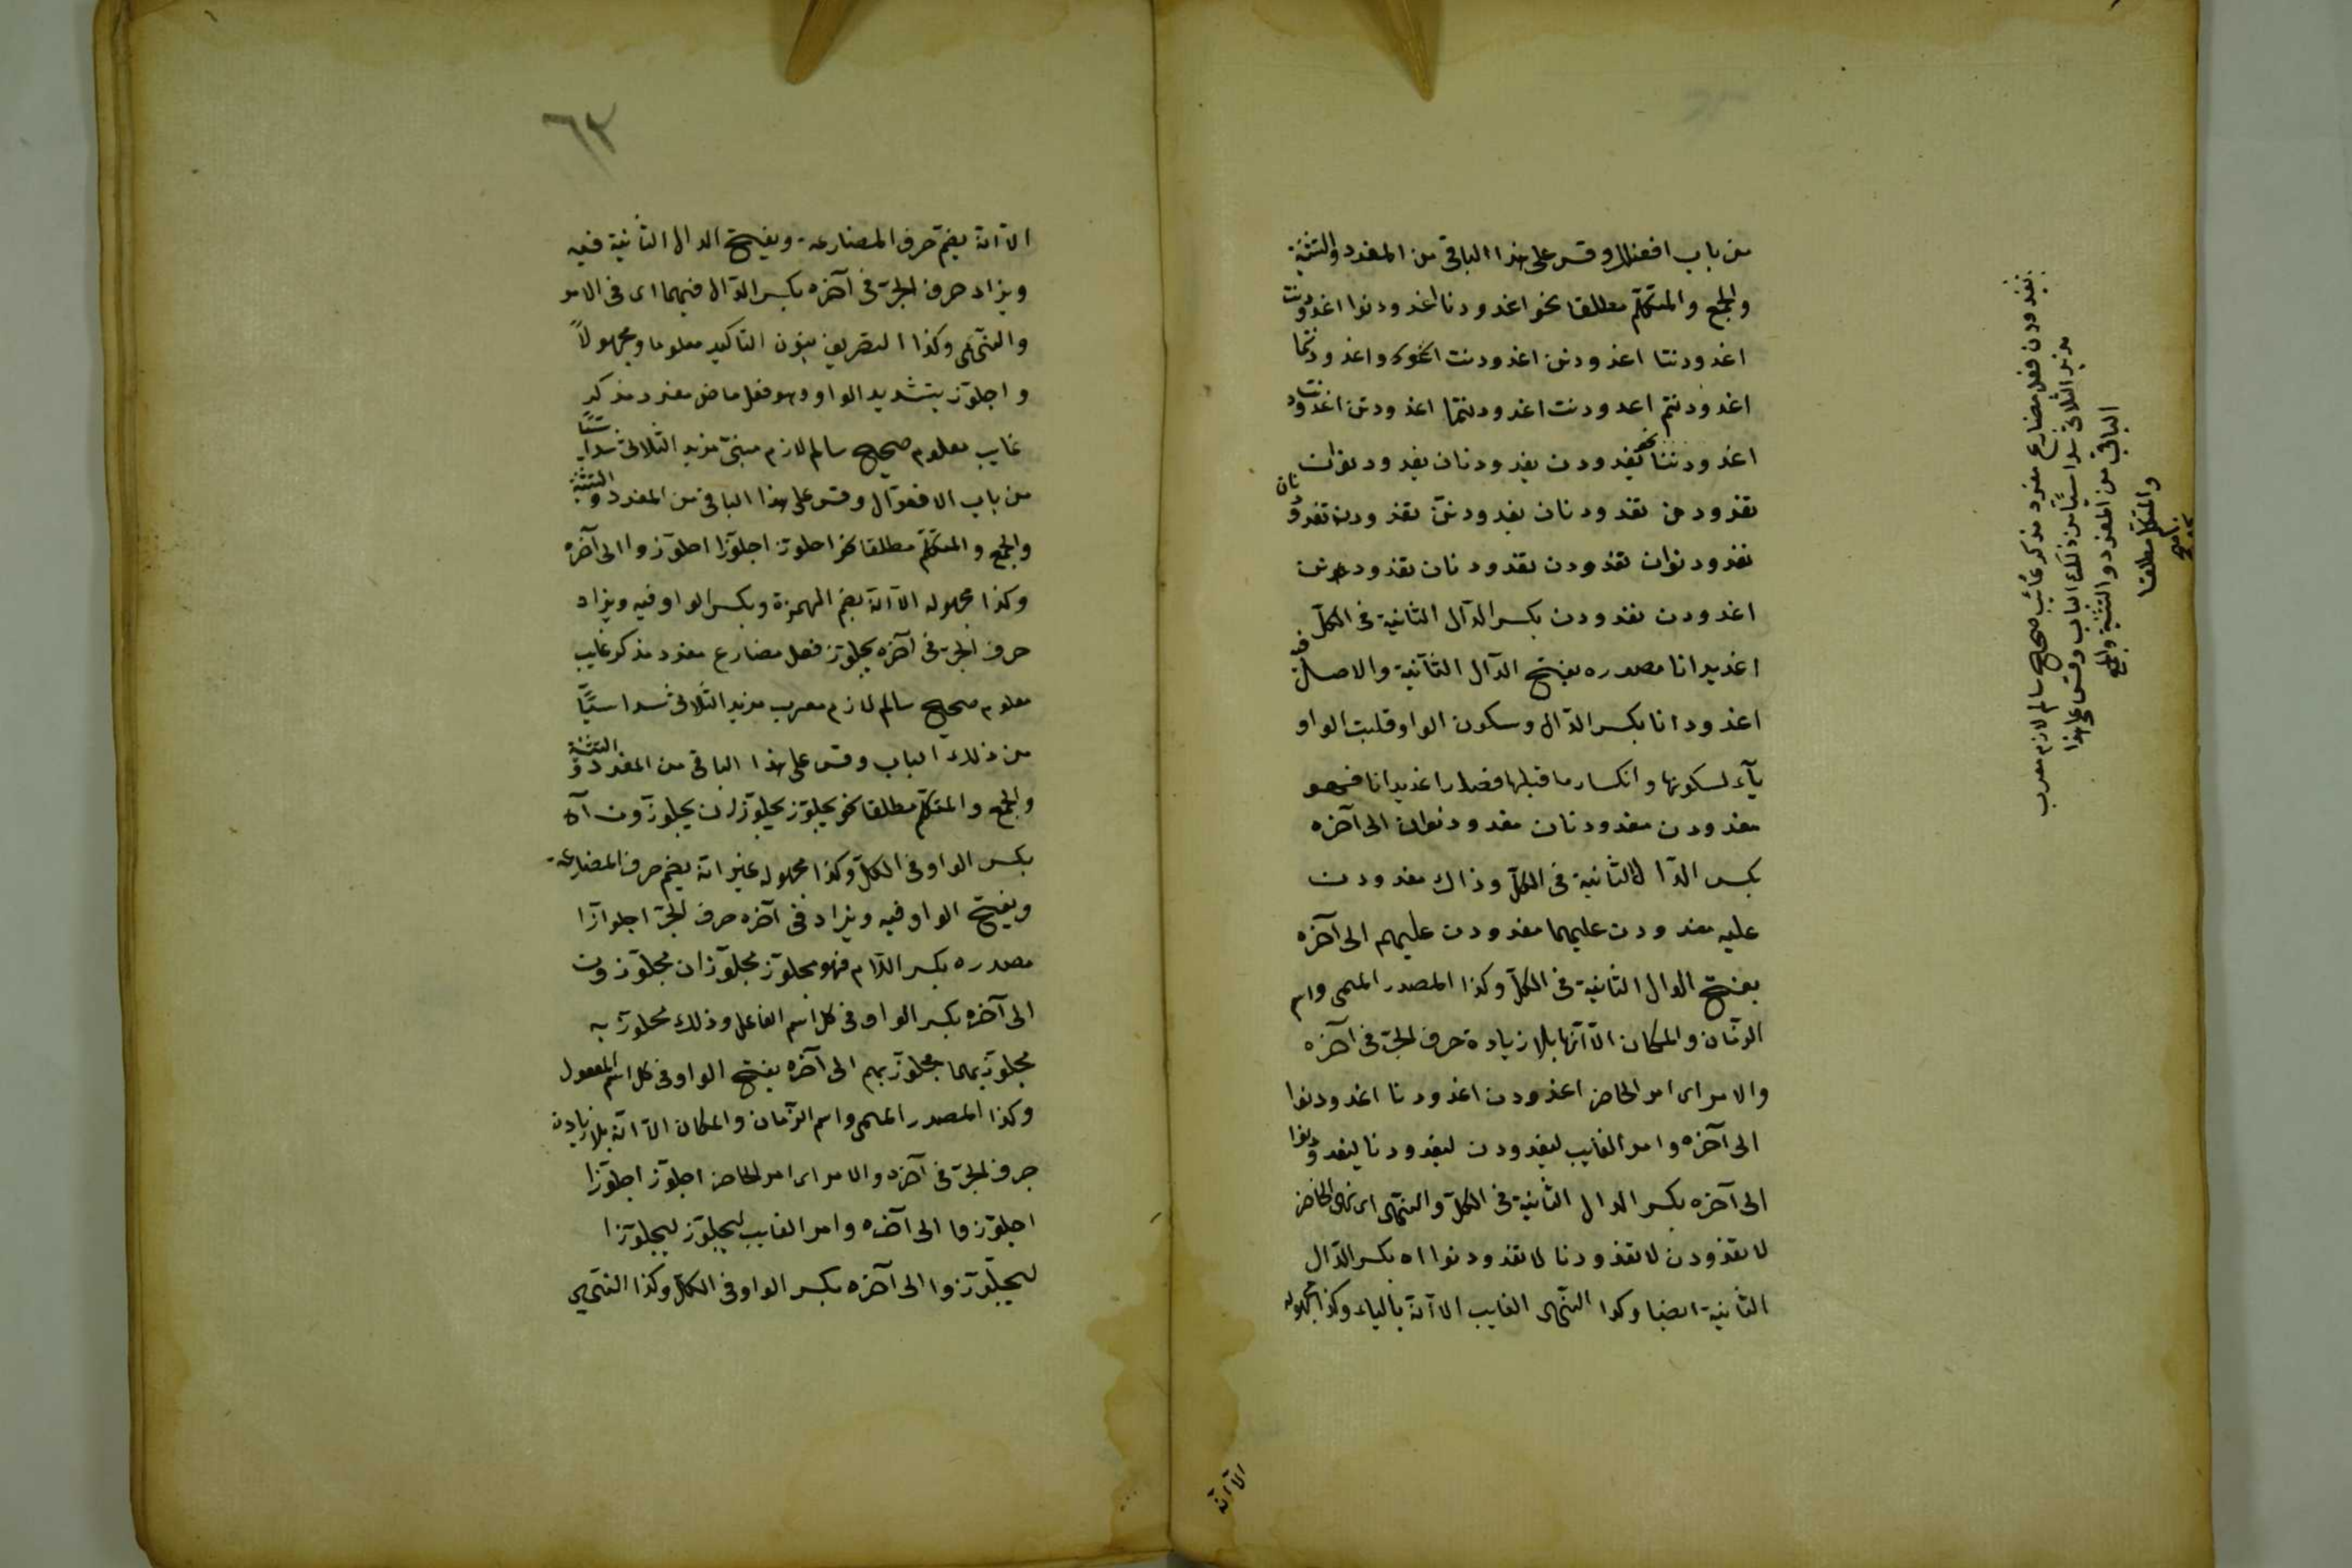 من باب افعنلال وقس على هذا الباقى من المفرد والتثنية
والجمع والمتكلم مطلقا نحو اغدودنا اغدودنوا اغدودنت
اغدودنتا اغدودن اغدودنت واغدودنتما
اغدودنتم اغدودنت اغدودنتما اغدودنتن اغدودنت
اغدودننا نحو يغدودن يغدودنان يغدودنون
تغدودن تغدودنان يغدودنّ تغدودن تغدودنان
تغدودنون تغدودن تغدودنان تغدودن
اغدودن نغدودن بكسر الدّال الثانية فى الكلّ
اغديدانا مصدره بفتح الدّال الثّانية والاصل فيه
اغدودانا بكسر الدّال وسكون الواو قلبت الواو
يآء لسكونها وانكسار ما قبلها فصار اغديدانا فهو
مغدودن مغدودنان مغدودنون الى آخره
بكسر الدّال الثانية فى الكلّ وذاك مغدودن
عليه مغدودن عليهما مغدودن عليهم الى آخره
بفتح الدال الثانية فى الكلّ وكذا المصدر الميمى واسم
الزّمان والمكان الّا انّها بلا زيادة حرف الجرّ فى آخره
والامر اى امر الحاضر اغدودن اغدودنا اغدودنوا
الى آخره وامر الغايب ليغدودن ليغدودنا ليغدودنوا
الى آخره بكسر الدال الثّانية فى الكلّ والنّهى اى نهى الحاضر
لا تغدودن لا تغدودنا لا تغدودنوا اه بكسر الدّال
الثّانية ايضا وكذا النّهى الغايب الا انّه بالياء وكذا مجهوله
الّا انّه
يغدودن فعل مضارع مفرد مذكر غائب صحيح سالم لازم معرب
مزيد الثلاثى سداسيّا من ذلك الباب وقس على هذا
الباقى من المفرد والتثنية والجمع
والمتكلم مطلقا
٦٣
الّا انّه بضمّ حرف المضارعة وبفتح الدال الثّانية فيه
ويزاد حرف الجرّ فى آخره بكسر الدّال فيهما اى فى الامر
والنّهى وكذا التصريف بنون التاكيد معلوما ومجهولاً
واجلوّز بتشديد الواو وهو فعل ماض مفرد مذكر
غايب معلوم صحيح سالم لازم مبنىّ مزيد الثّلاثى سداسيّا
من باب الافعوّال وقس على هذا الباقى من المفرد والتثنية
والجمع والمتكلّم مطلقا نحو اجلوّز اجلوّزا اجلوّزوا الى آخره
وكذا مجهوله الّا انّه بضم الهمزة وبكسر الواو فيه ويزاد
حرف الجرّ فى آخره يجلوّز فعل مضارع مفرد مذكر غايب
معلوم صحيح سالم لازم معرب مزيد الثّلاثى سداسيّاً
من ذلك الباب وقس على هذا الباقى من المفرد والتثنية
والجمع والمتكلّم مطلقا نحو يجلوّز يجلوّزان يجلوّزون آه
بكسر الواو فى الكلّ وكذا مجهوله غير انّه بضم حرف المضارعة
وبفتح الواو فيه ويزاد فى آخره حرف الجرّ اجلوّازا
مصدره بكسر اللّام فهو مجلوّز مجلوّزان مجلوّزون
الى آخره بكسر الواو فى كل اسم الفاعل وذلك مجلوّز به
مجلوّز بهما مجلوّز بهم الى آخره بفتح الواو فى كل اسم المفعول
وكذا المصدر الميمى واسم الزّمان والمكان الّا انّه بلا زيادة
حرف الجرّ فى آخره والامر اى امر الحاضر اجلوّز اجلوّزا
اجلوّزوا الى آخره وامر الغايب ليجلوّز ليجلوّزا
ليجلّوّزوا الى آخره بكسر الواو فى الكلّ وكذا النّهى